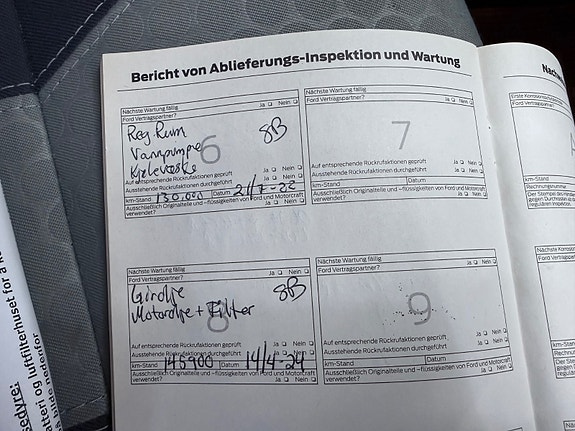 Bericht von Ablieferungs-Inspektion und Wartung
Nächste Wartung fällig
Ford Vertragspartner? Ja Nein
Reg.Rum 8B
Vanpumpe
Kølevæske
6
Auf entsprechende Rückrufaktionen geprüft Ja Nein
Ausstehende Rückrufaktionen durchgeführt Ja Nein
km-Stand 130.000 Datum 21/7-22
Ausschließlich Originalteile und -flüssigkeiten von Ford und Motorcraft
verwendet? Ja Nein
Nächste Wartung fällig
Ford Vertragspartner? Ja Nein
7
Auf entsprechende Rückrufaktionen geprüft Ja Nein
Ausstehende Rückrufaktionen durchgeführt Ja Nein
km-Stand Datum
Ausschließlich Originalteile und -flüssigkeiten von Ford und Motorcraft
verwendet? Ja Nein
Nächste Wartung fällig
Ford Vertragspartner? Ja Nein
Girolje 8B
Motorolje + Filter
8
Auf entsprechende Rückrufaktionen geprüft Ja Nein
Ausstehende Rückrufaktionen durchgeführt Ja Nein
km-Stand 145900 Datum 14/4-24
Ausschließlich Originalteile und -flüssigkeiten von Ford und Motorcraft
verwendet? Ja Nein
Nächste Wartung fällig
Ford Vertragspartner? Ja Nein
9
Auf entsprechende Rückrufaktionen geprüft Ja Nein
Ausstehende Rückrufaktionen durchgeführt Ja Nein
km-Stand Datum
Ausschließlich Originalteile und -flüssigkeiten von Ford und Motorcraft
verwendet? Ja Nein
km-Stand
Rechnungsnummer
km-Stand